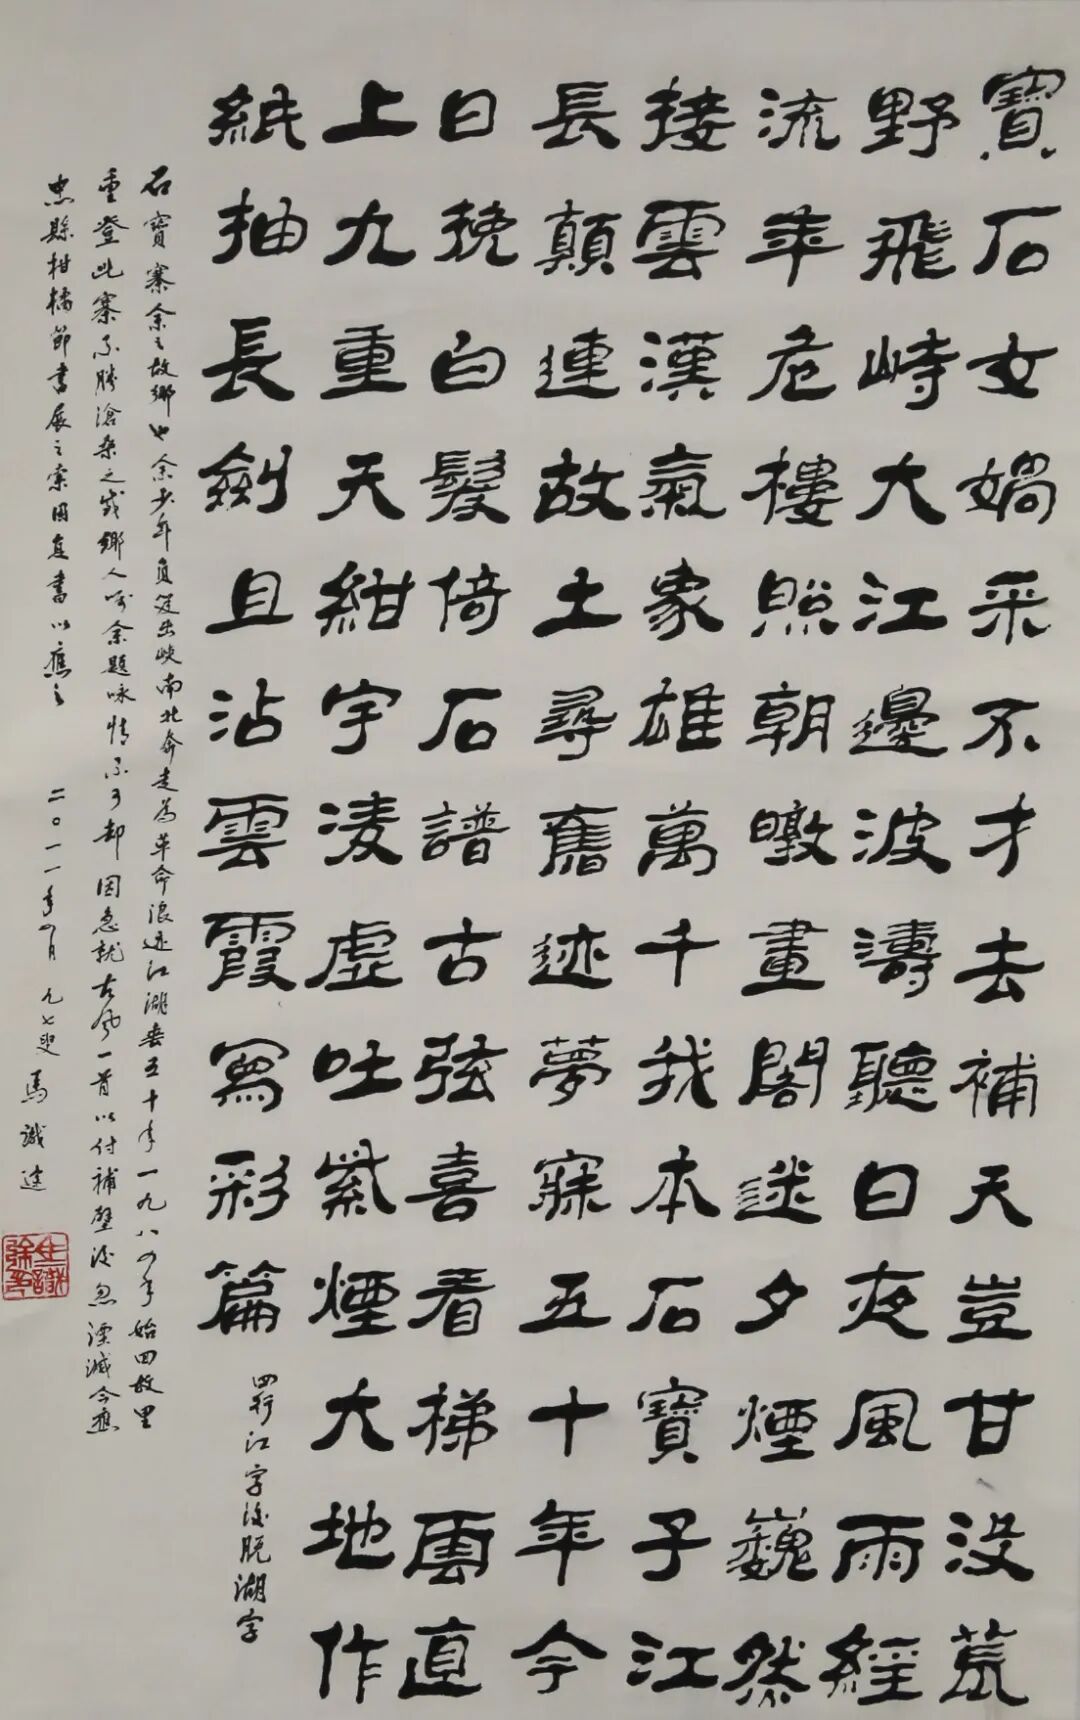 寶石女媧采不才去補天豈甘没荒
野飛峙大江邊波濤聽日夜風雨經
流年危樓照朝暾畫閣迷夕煙巍然
接雲漢氣象雄萬千我本石寶子江
長顛連故土尋舊迹夢寐五十年今
日挽白髮倚石譜古弦喜看梯雲直
上九重天紺宇凌虛吐紫煙大地作
紙抽長劍且沾雲霞寫彩篇
四行江字後脱湖字
石寶寨余之故鄉也余少年負笈出峽南北奔走為革命浪迹江湖垂五十年一九八四年始回故里
重登此寨不勝滄桑之感鄉人囑余題咏情不可却因急就古風一首以付補壁後忽湮滅今應
忠縣柑橘節書展之索因直書以應之 二〇一一年八月 九七叟 馬識途